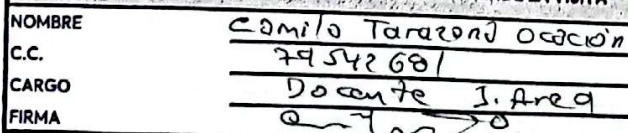 NOMBRE Camilo Tarazona Ocación
C.C. 79542681
CARGO Docente J. Area
FIRMA